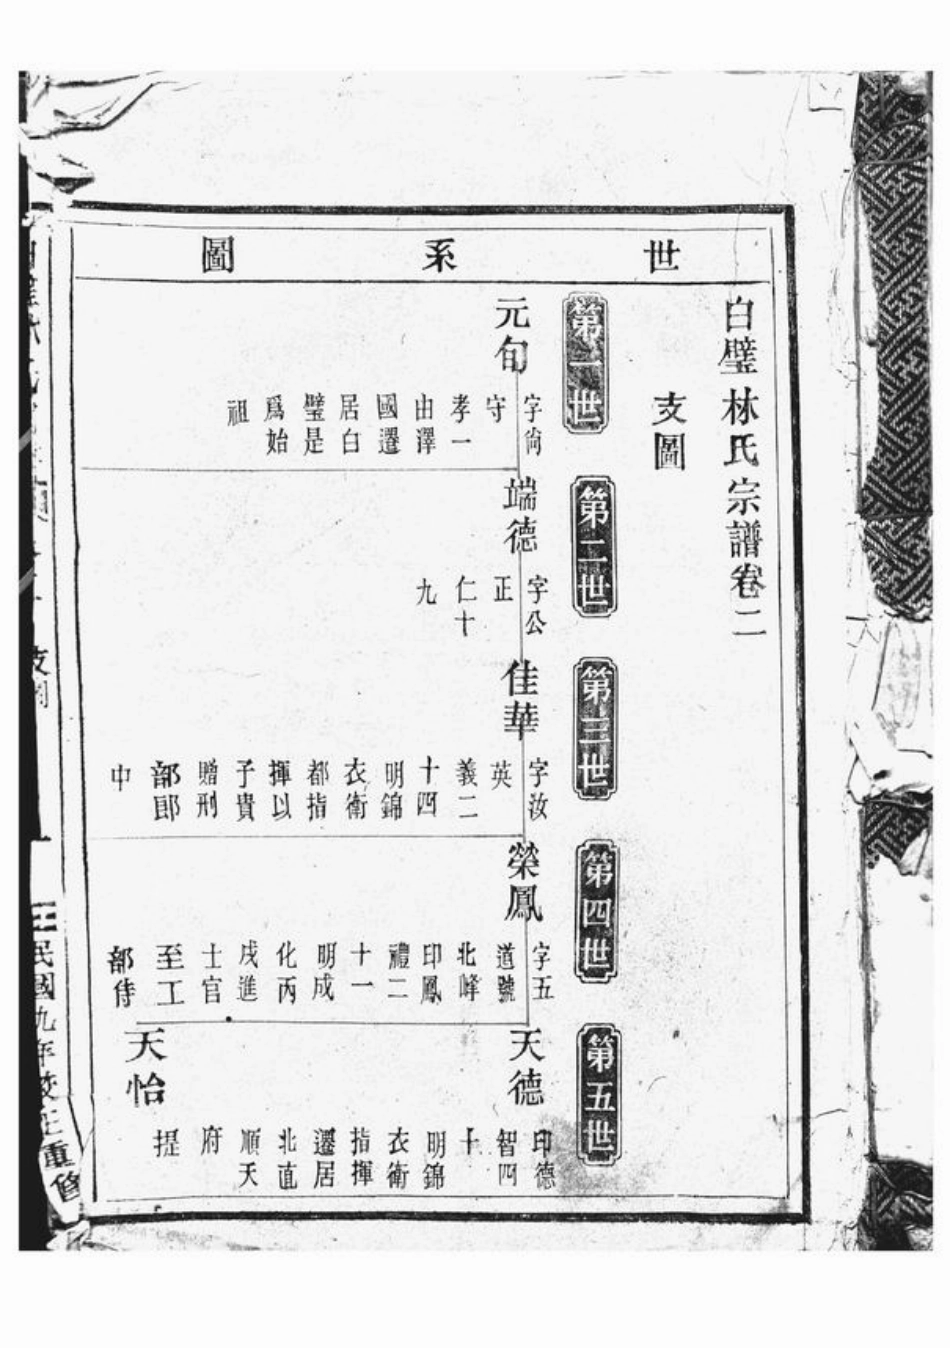 世系圖
白璧林氏宗譜卷二
支圖
第一世
元旬
字尙
守
孝一
由澤
國遷
居白
璧是
爲始
祖
第二世
端德
字公
正
仁十
九
第三世
佳華
字汝
英
義二
十四
明錦
衣衛
都指
揮以
子貴
贈刑
部郎
中
第四世
榮鳳
字五
道號
北峰
印鳳
禮二
十一
明成
化丙
戌進
士官
至工
部侍
第五世
天德
印德
智四
十
明錦
衣衛
指揮
遷居
北直
順天
府
天怡
提
支圖
民國九年
重修